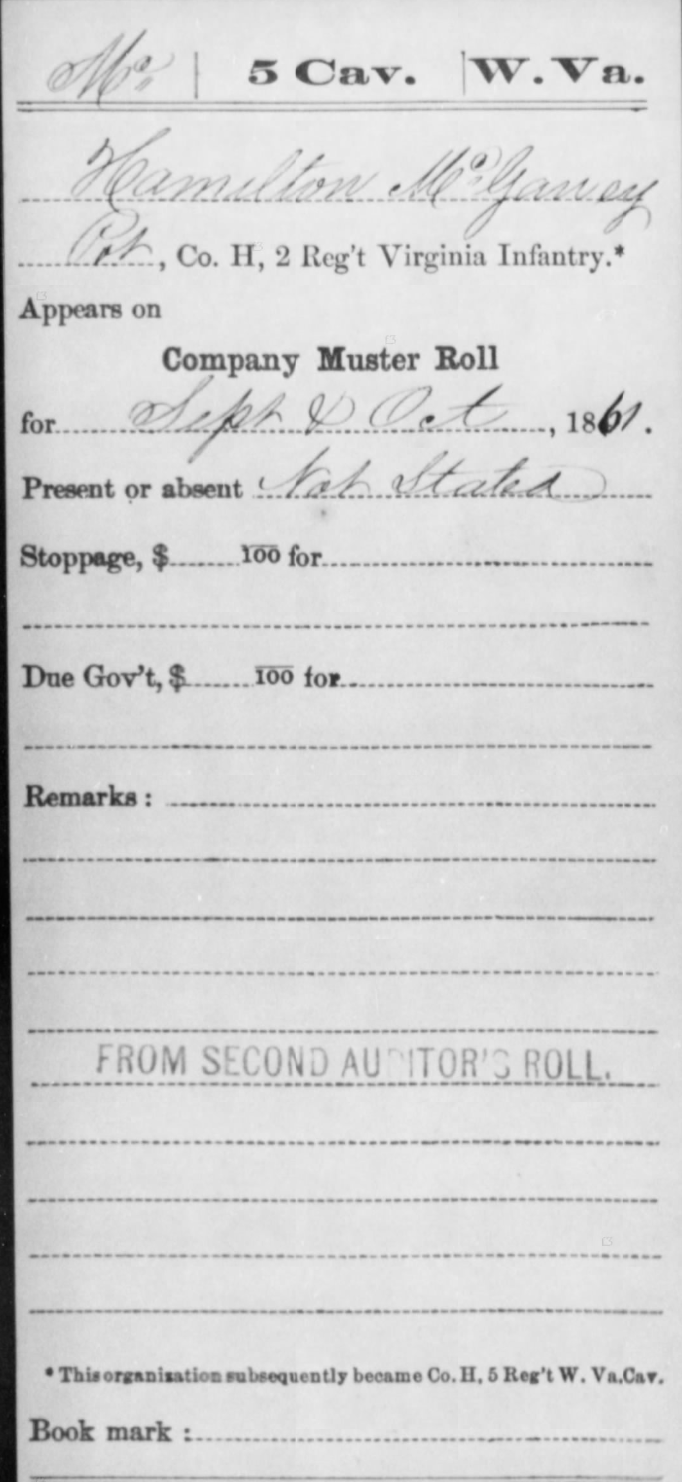 Mc | 5 Cav. | W. Va.
Hamilton McGarvey
Pvt, Co. H, 2 Reg't Virginia Infantry.*
Appears on
Company Muster Roll
for Sept & Oct, 1861.
Present or absent Not Stated
Stoppage, $ 100 for
Due Gov't, $ 100 for
Remarks:
FROM SECOND AUDITOR'S ROLL.
* This organization subsequently became Co. H, 5 Reg't W. Va. Cav.
Book mark: